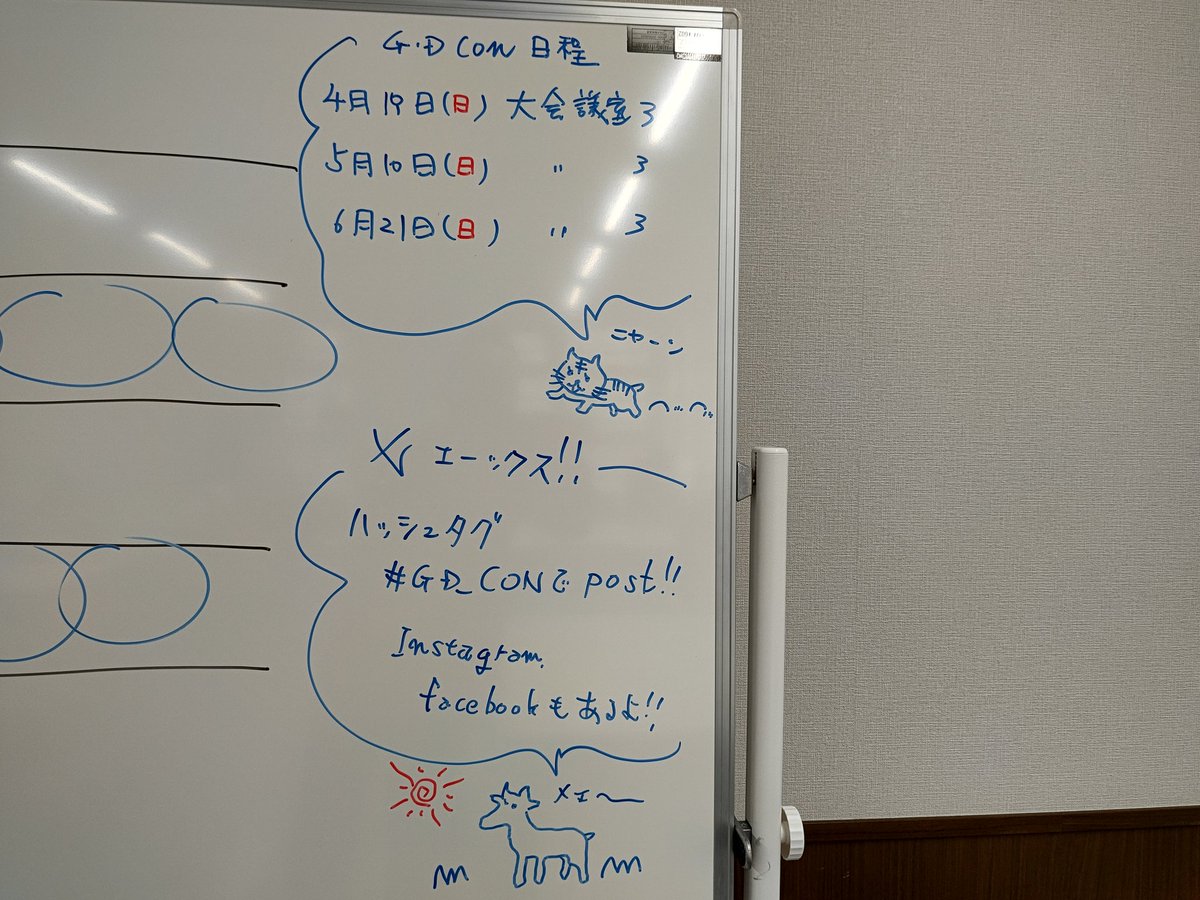 G・D CON 日程
4月19日(日) 大会議室3
5月10日(日) 〃 3
6月21日(日) 〃 3
ニャーン
X エーックス!!
ハッシュタグ
#GD_CONで post!!
Instagram,
facebookもあるよ!!
メェ〜